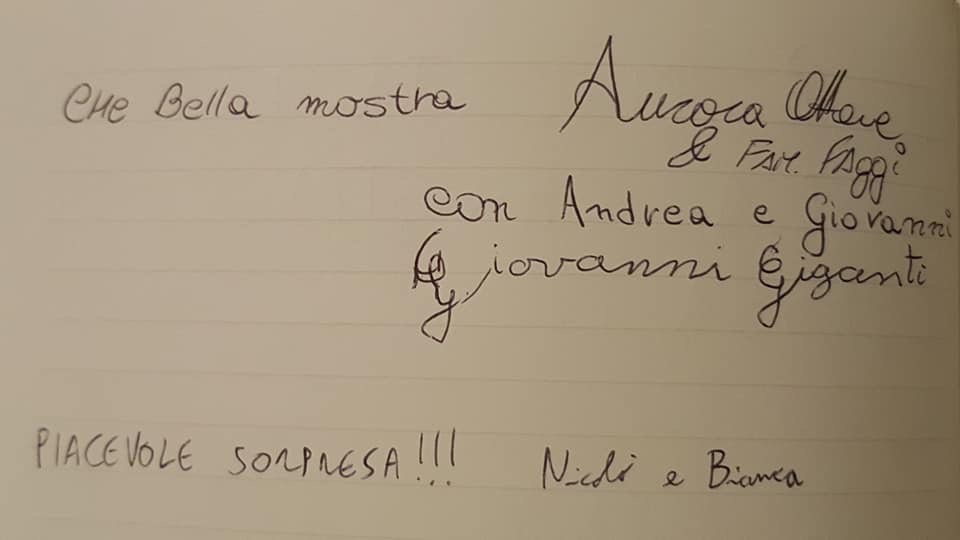 CHE Bella mostra Aurora
& FAM. FAggi
con Andrea e Giovanni
Giovanni Giganti
PIACEVOLE SORPRESA!!! Nicolò e Bianca